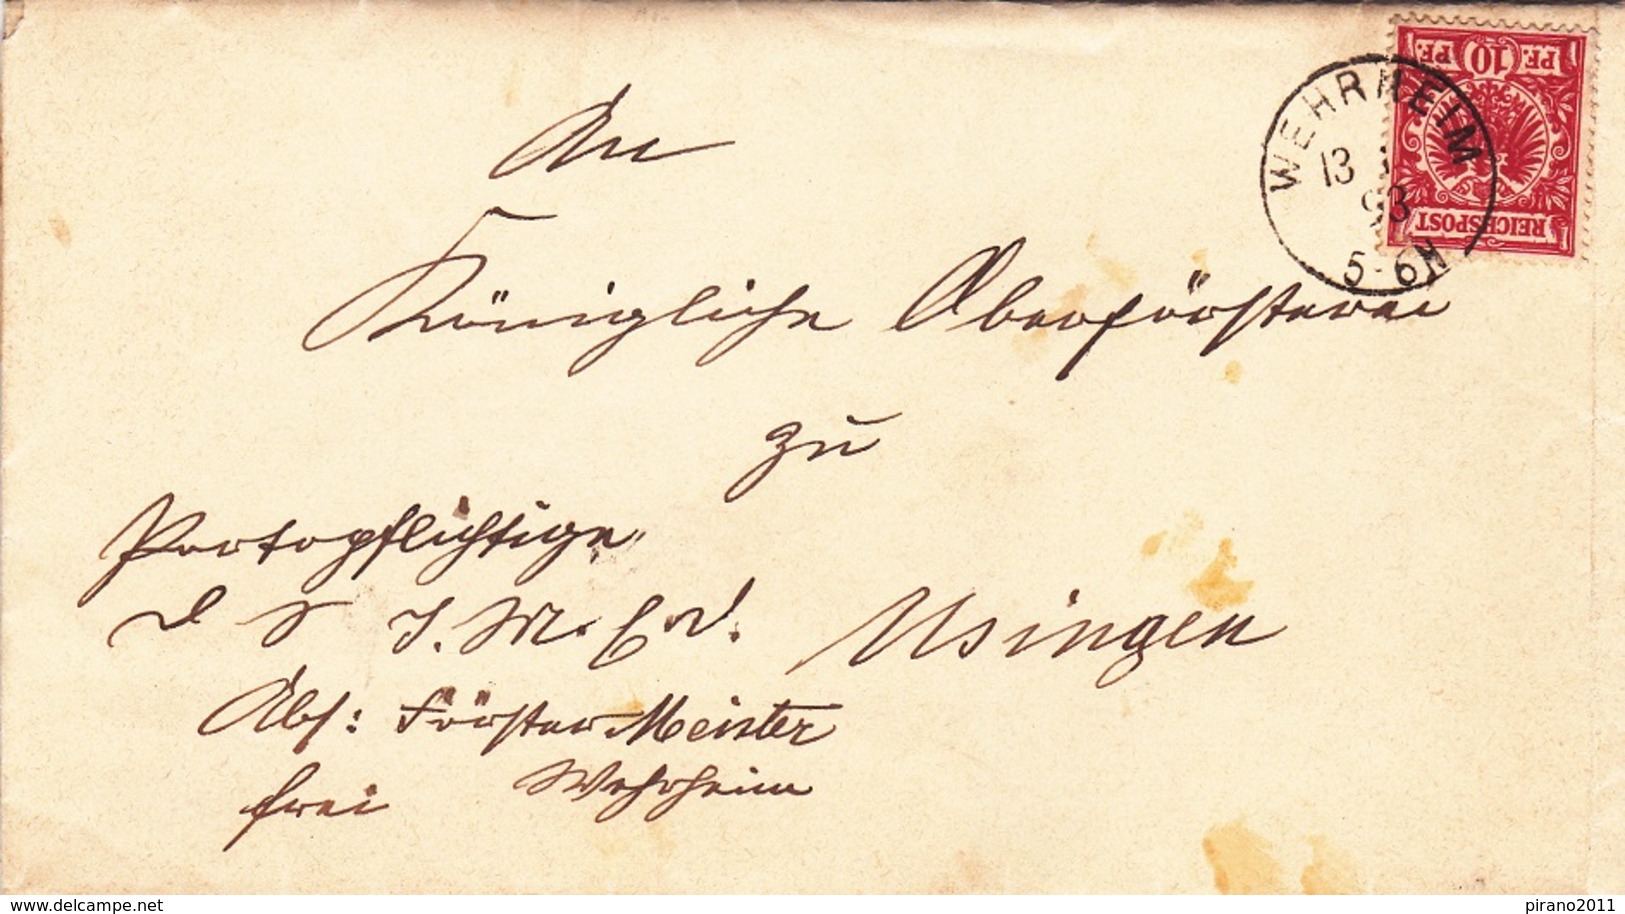 PF. 10 PF.
REICHSPOST
WEHRHEIM
13
93
5-6N
An
Königliche Oberförsterei
zu
Portopflichtige
D S J. M. C. d.
Usingen
Abs: Förster Meister
frei Wehrheim
www.delcampe.net
pirano2011